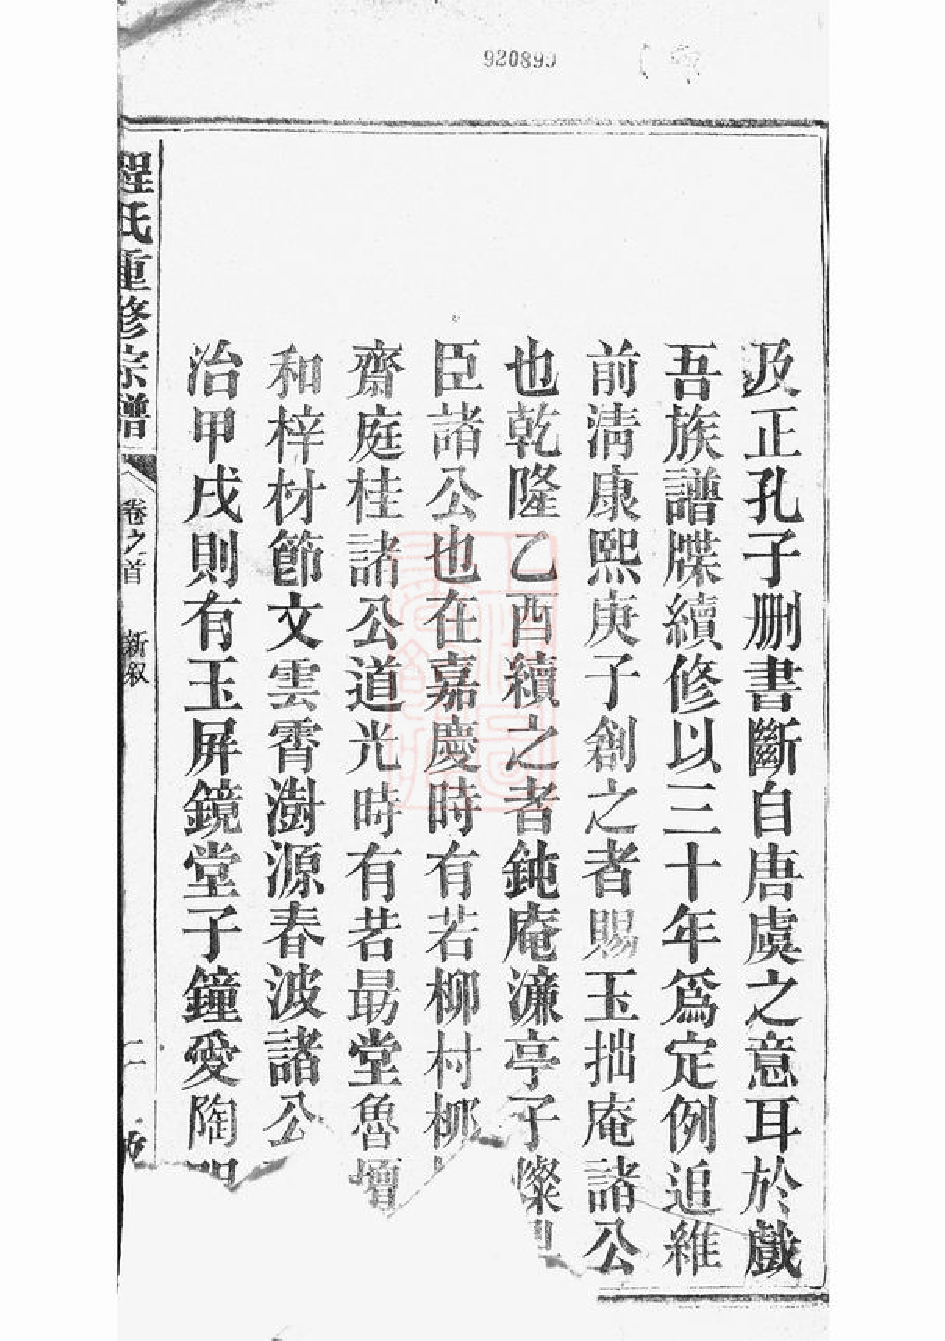 920899
及正孔子删書斷自唐虞之意耳於戲
吾族譜牒續修以三十年爲定例追維
前淸康熙庚子創之者賜玉拙庵諸公
也乾隆乙酉續之者鈍庵濂亭子燦
臣諸公也在嘉慶時有若柳村柳
齋庭桂諸公道光時有若最堂魯壇
和梓材節文雲霄澍源春波諸公
治甲戌則有玉屏鏡堂子鐘愛陶
程氏重修宗譜
卷之首 新叙
二